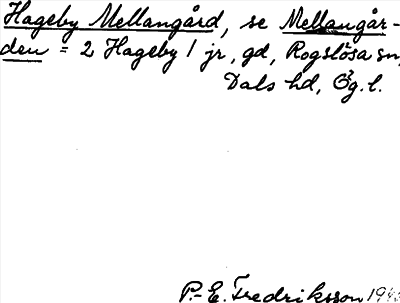 Hageby Mellangård, se Mellangår-
den = 2 Hageby 1 jr, gd, Rogslösa sn,
Dals hd, Ög. l.
P.-E. Fredriksson